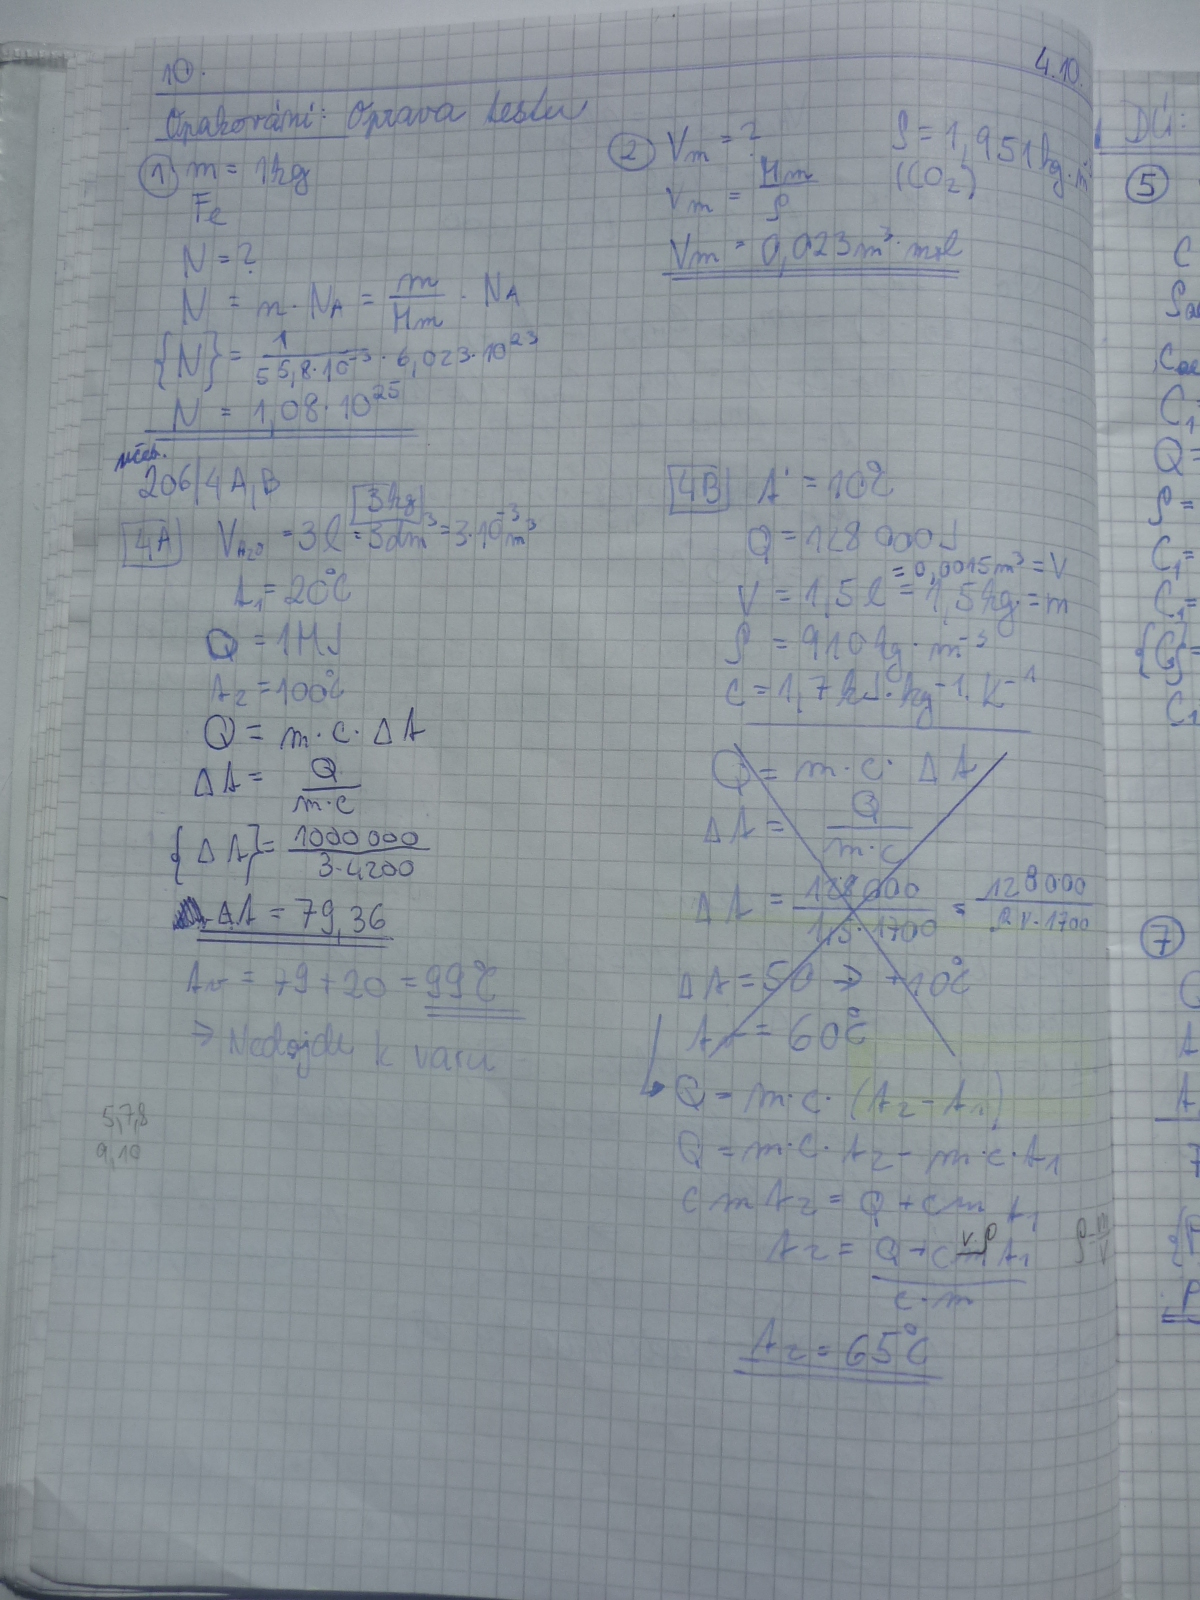 10.
4.10.
Opakování: Oprava testu
① m = 1kg
Fe
N = ?
N = n · NA = m/Mm · NA
{N} = 1/55,8·10⁻³ · 6,023·10²³
N = 1,08·10²⁵
② Vm = ?
ρ = 1,951kg·m
(CO₂)
Vm = Mm/ρ
Vm = 0,023m³·mol
učeb.
206/4A,B
3kg
4A VH₂O = 3l = 3dm³ = 3·10⁻³m³
t₁ = 20°C
Q = 1MJ
t₂ = 100°C
Q = m·c·Δt
Δt = Q/m·c
{Δt} = 1000000/3·4200
Δt = 79,36
tv = 79+20 = 99°C
⇒ Nedojde k varu
5,7,8
9,10
4B t = 10°C
Q = 128 000J
= 0,0015m³ = V
V = 1,5l = 1,5kg = m
ρ = 910kg·m⁻³
c = 1,7kJ·kg⁻¹·K⁻¹
Q = m·c·Δt
Δt = Q/m·c
Δt = 128000/1,5·1700 = 128000/ρV·1700
Δt = 50 ⇒ +10°C
tv = 60°C
Q = m·c·(t₂-t₁)
Q = m·c·t₂ - m·c·t₁
c m t₂ = Q + cm t₁
V·ρ
t₂ = Q + cm t₁/c·m
ρ = m/V
t₂ = 65°C
DÚ:
⑤
C
Q =
ρ =
C₁ =
C₁ =
C₁
⑦